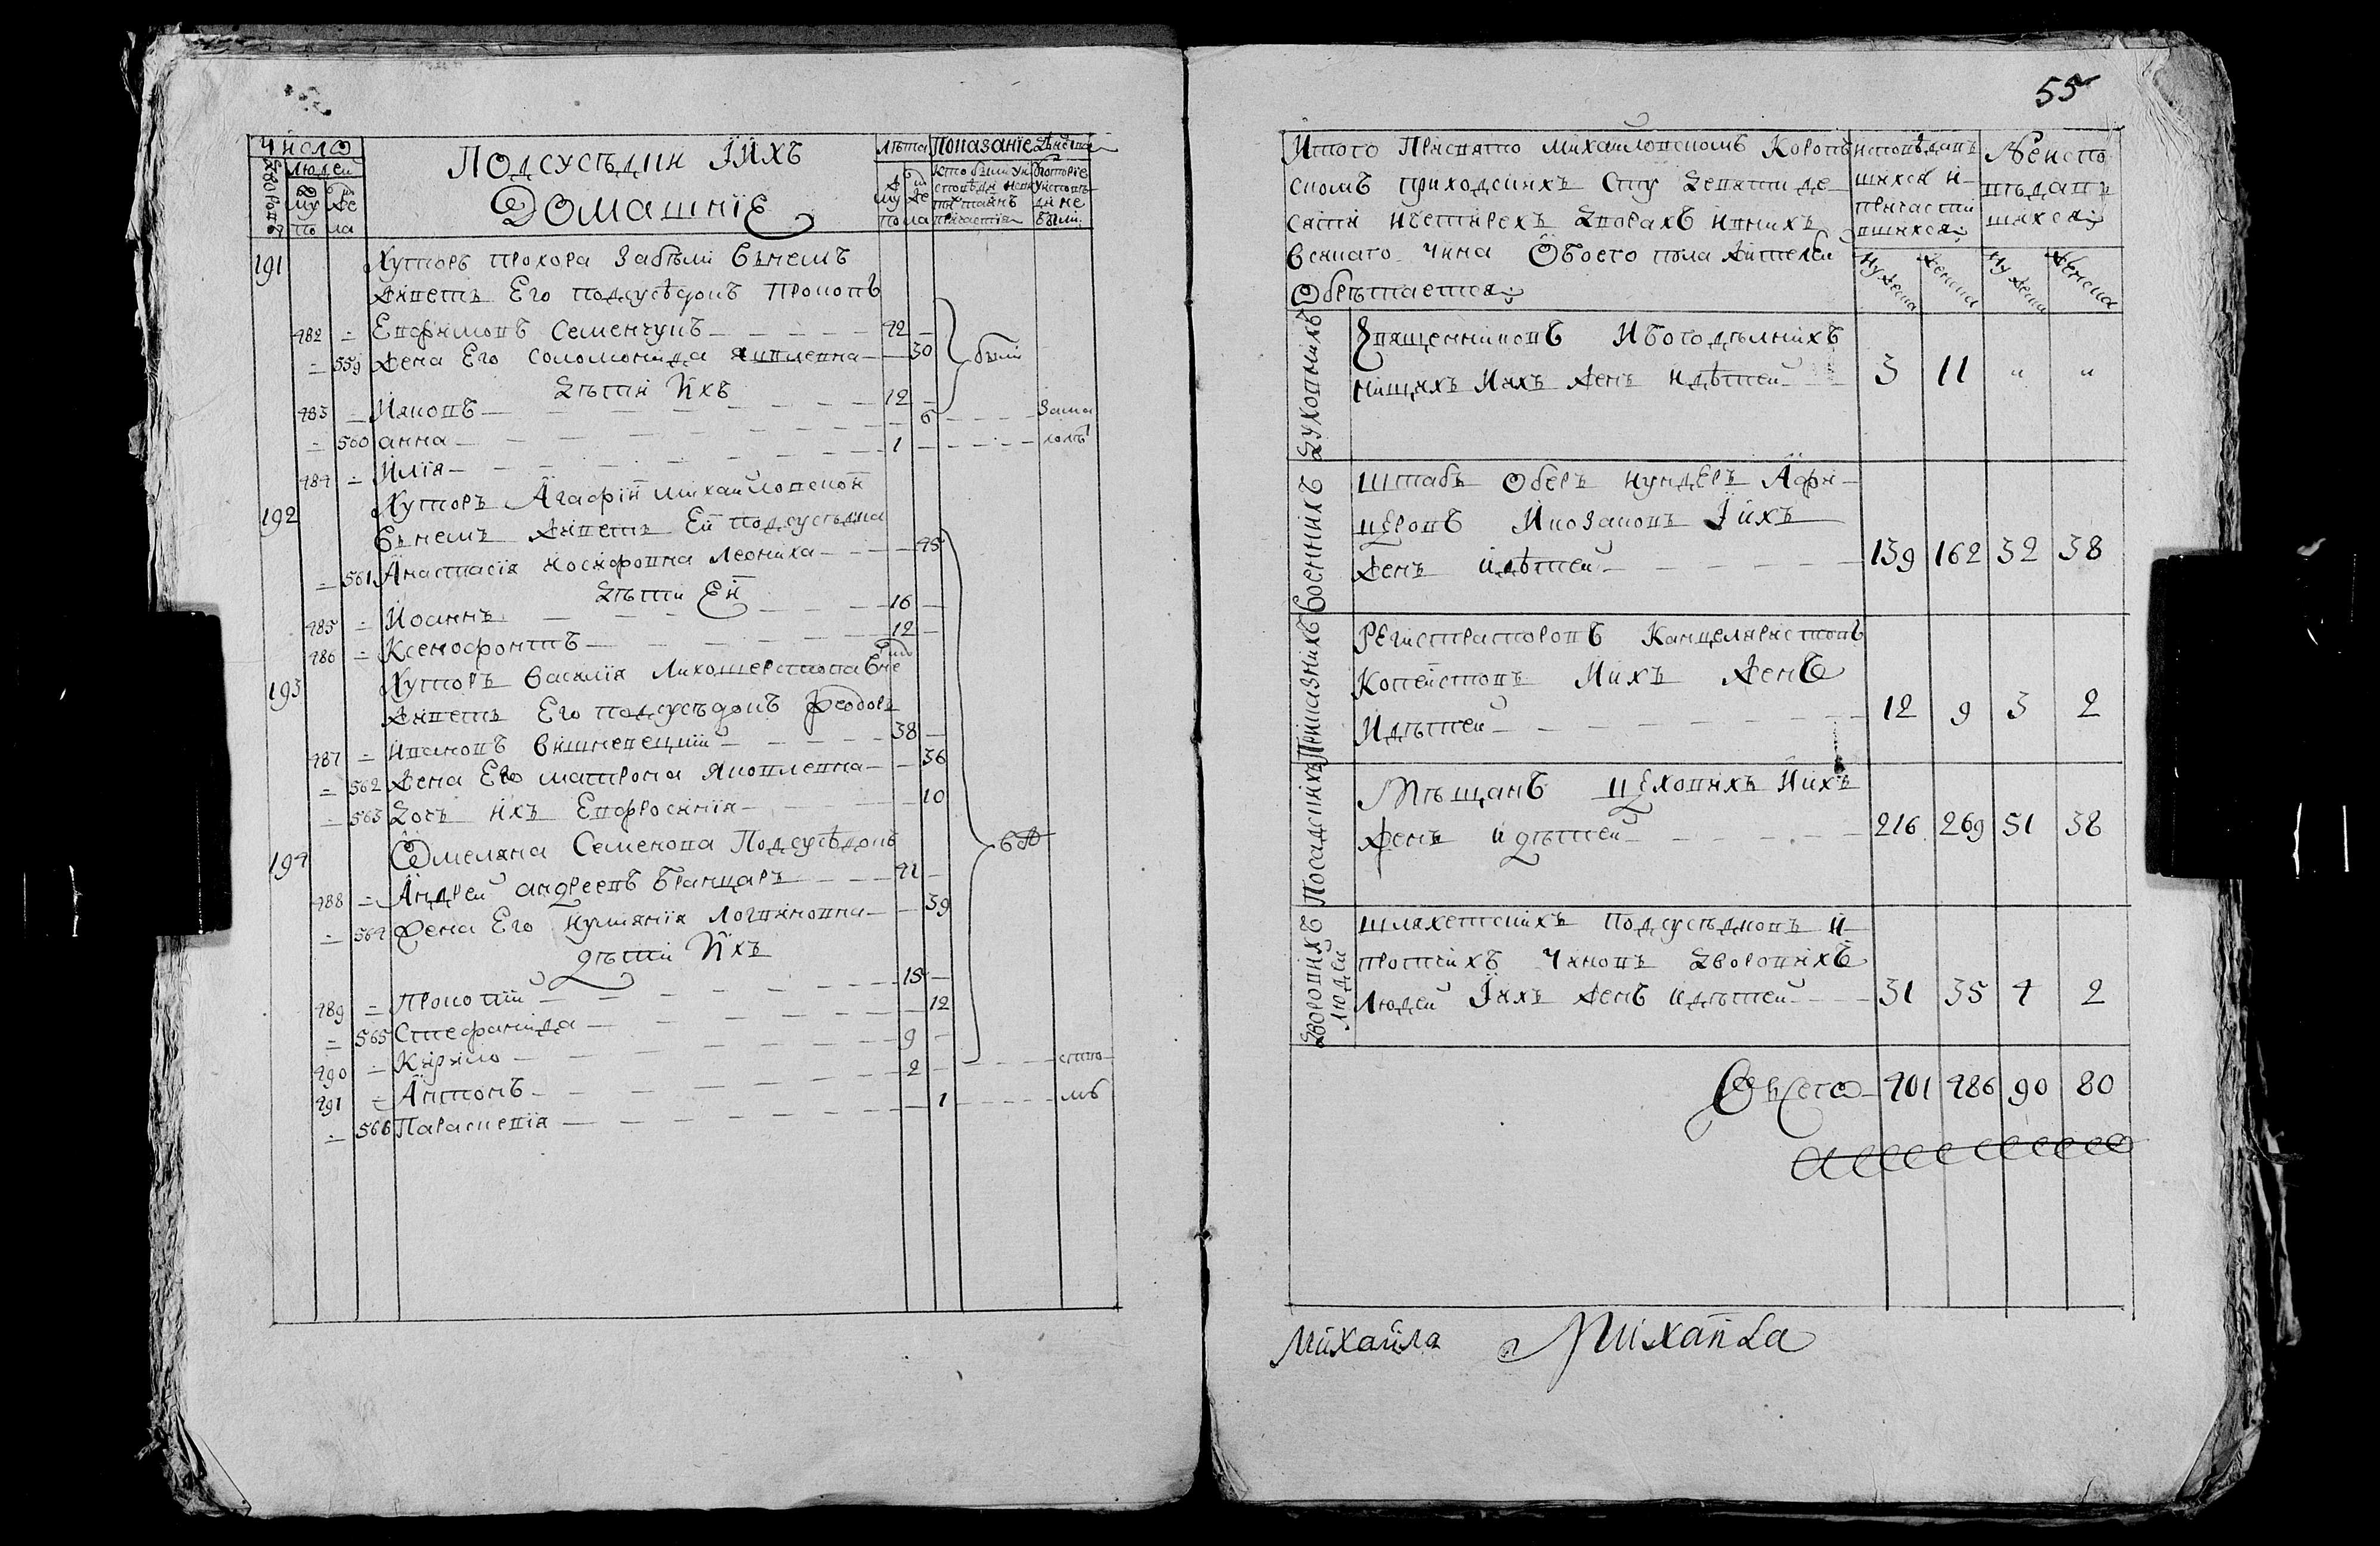 Число
Дворовъ
людей
му
же
по
ла
Подсусѣдки Ихъ
Домашніе
лѣта
му
же
пола
Показаніе
кто были у исповѣди
которіе у исповѣди не были
191
Хуторъ Прохора Забѣли Внемъ
Живетъ Его подсусѣдокъ Прокопъ
482 = Евфимовъ Семенчукъ 42
= 559 Жена Его Соломонида Яковлевна 30
были
Дѣти Ихъ
483 = Іяковъ 12
= 560 анна 6
за ма
484 = Илія 1
лолѣ
192
Хуторъ Агафіи Михайловской
Внемъ Живетъ Ей подсусѣдка
= 561 Анастасія Іосифовна Леониха 45
Дѣти Ей
485 = Иоаннъ 16
486 = Ксенофонтъ 12
193
Хуторъ Василія Лихошерстова Вне
Живетъ Его подсусѣдокъ Феодоръ
487 = Ивановъ Вишневецкій 38
= 562 Жена Его Матрона Яковлевна 36
= 563 Дочъ Ихъ Евфросинія 10
194
Омеляна Семенова Подсусѣдокъ
488 = Андрей андреевъ Бранцаръ 41
= 564 Жена Его Иулянія Логвиновна 39
дѣти Ихъ
489 = Прокопій 15
= 565 Стефанида 12
490 = Кирило 9
491 = Антонъ 2
= 566 Параскевія 1
55
Итого При Свято Михайловскомъ Коропъ
скомъ приходскихъ Сту Девятиде
сяти Ичетирехъ Дворахъ Ивнихъ
Всякаго Чина Обоего пола Жителей
Обрѣтается
исповѣдав
шихся и
причасти
вшихся
Неиспо
вѣдав
шихся
Мужеска
Женска
Мужеска
Женска
Духовнихъ
Священниковъ Ибогодѣлнихъ
Нищихъ Ихъ Женъ Идѣтей 3 11 " "
Военнихъ
Штабъ Оберъ Иундеръ Афи
церовъ Икозаковъ Іихъ
Женъ Идѣтей 139 162 32 38
Приказнихъ
Регистраторовъ Канцеляристовъ
Копѣистовъ Иихъ Женъ
Идѣтей 12 9 3 2
Посадскихъ
Мѣщанъ Цеховихъ Иихъ
Женъ Идѣтей 216 269 51 38
Дворовихъ людей
Шляхетскихъ Подсусѣдковъ И
протчихъ Чиновъ Дворовихъ
Людей Іихъ Женъ Идѣтей 31 35 4 2
Всего 401 486 90 80
Михайла Михайла